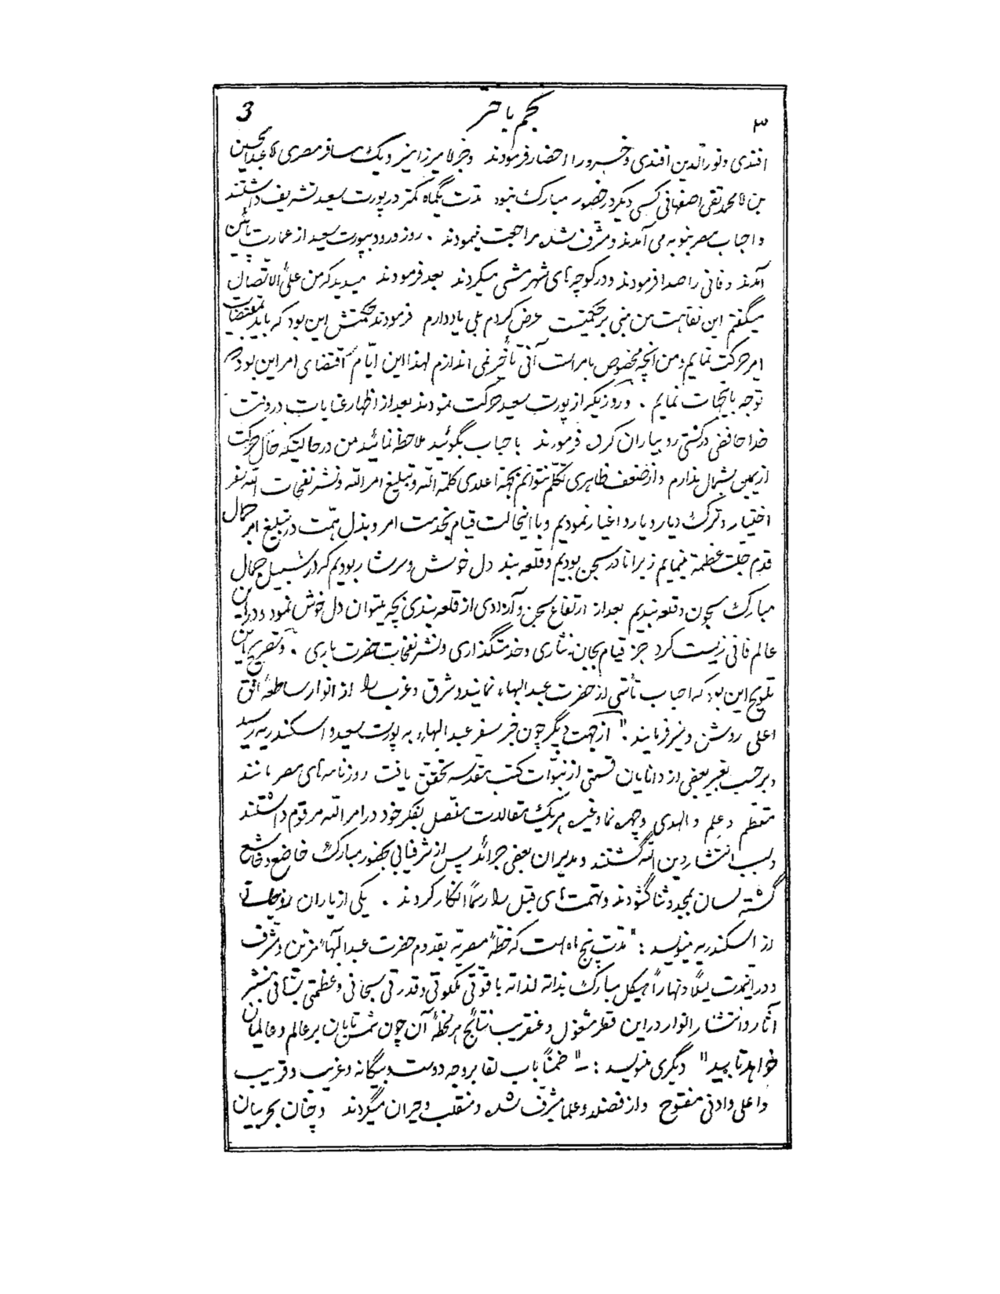 3 نجم باختر ٣
افندی و نورالدین افندی و خسرو را احضار فرمودند و جز آقا میرزا منیر و یک مسافر مصری آقا عبدالحسین
بن آقا محمد تقی اصفهانی کسی دیگر در حضور مبارک نبود مدت یکماه کمتر در پورت سعید تشریف داشتند
و احباب مصر بنوبه می آمدند و مشرف شده مراجعت نمودند . روز ورود بپورت سعید از عمارت پائین
آمدند و فانی را صدا فرمودند و در کوچه های شهر مشی میکردند بعد فرمودند میدیدید که من علی الاتصال
میگفتم این نقاهت من مبنی بر حکمتیست عرض کردم بلی یاد دارم فرمودند حکمتش این بود که باید بمقتضیات
امر حرکت نمایم و من آنچه مخصوص بامر است آنی تأخیر نمی اندازم لهذا این ایّام اقتضای امر این بود که
توجه باینجهات نمایم . و روزیکه از پورت سعید حرکت نمودند بعد از اظهار عنایات در وقت
خدا حافظی در کشتی رو بیاران کرده فرمودند باحباب بگوئید ملاحظه نمائید من در حالیکه حال حرکت
از یمین بشمال ندارم و از ضعف ظاهری تکلم نتوانم بجهة اعلای کلمة الله و تبلیغ امر الله و نشر نفحات الله سفر
اختیار و ترک دیار و یار و اغیار نمودیم و با اینحالت قیام بخدمت امر و بذل همّت در تبلیغ امر جمال
قدم جلّت عظمته مینمایم زیرا تا در سجن بودیم و قلعه بند دل خوش و سرشار بودیم که در سبیل جمال
مبارک مسجون و قلعه بندیم بعد از ارتفاع سجن و آزادی از قلعه بندی بچه میتوان دل خوش نمود و در این
عالم فانی زیست کرد جز قیام بجان نثاری و خدمتگذاری و نشر نفحات حضرت باری . و تصریح این
تلویح این بود که احباب تأسّی از حضرت عبدالبهاء نمایند و شرق و غرب را از انوار ساطعهٔ افق
اعلی روشن و منیر فرمایند ." از جهت دیگر چون خبر سفر عبدالبهاء به پورت سعید و اسکندریه رسید
و بر حسب تعبیر بعضی از دانایان قسمتی از نبوّات کتب مقدسه تحقق یافت روزنامه های مصر مانند
مقطّم و علم و الهدی و چهره نما و غیره هر یک مقالات مفصل بفکر خود در امر الله مرقوم داشتند
و سبب انتشار دین الله گشتند و مدیران بعضی جرائد پس از شرفیابی بحضور مبارک خاضع و خاشع
گشته لسان بمجد و ثنا گشودند و تهمت های قبل را رسماً انکار کردند . یکی از یاران روحانی
از اسکندریه مینویسد : " مدّت پنج ماه است که خطّهٔ مصریّه بقدوم حضرت عبدالبهاء مزیّن و مشرّف
و در اینمدت لیلاً و نهاراً هیکل مبارک بذاته لذاته با قوّتی ملکوتی و قدرتی سبحانی و عظمتی بنشر
آثار و انتشار انوار در این قطر مشغول و عنقریب نتائج هر لحظهٔ آن چون شمس تابان بر عالم و عالمیان
خواهد تابید" دیگری مینویسد : - " ضمناً باب لقا بر وجه دوست و بیگانه و غریب و قریب
و اعلی و ادنی مفتوح و از فضلا و علما مشرّف شده و منقلب و حیران میگردند و چنان بحر بیان